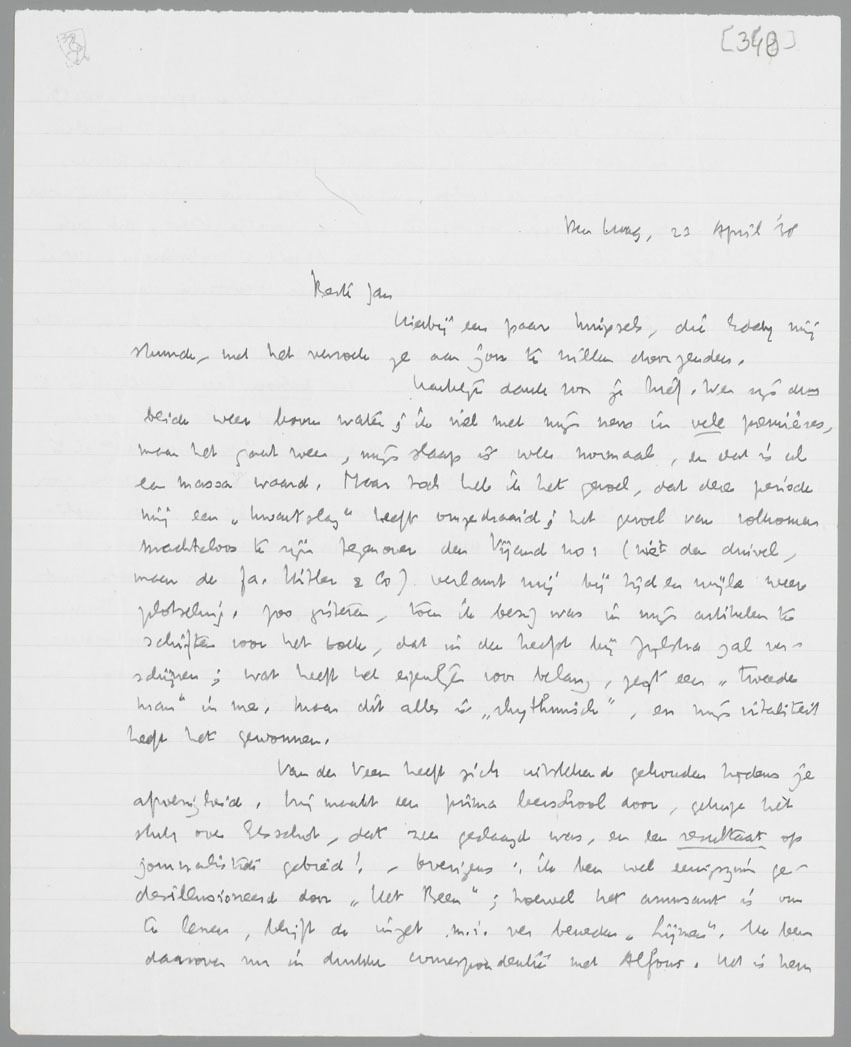 [348]
Den Haag, 23 April '38
Beste Jan
Hierbij een paar knipsels, die Eddy mij
stuurde, met het verzoek ze aan jou te willen doorzenden.
Hartelijk dank voor je brief. We zijn dus
beide weer boven water; ik viel met mijn nervo in vele premières,
maar het gaat weer, mijn slaap is weer normaal, en dat is al
een massa waard. Maar toch heb ik het gevoel, dat deze periode
mij een „kwartslag" heeft omgedraaid; het gevoel van volkomen
machteloos te zijn tegenover den Vijand no 1 (niet den duivel,
maar de fa. Hitler & Co) verlamt mij bij tijd en wijle weer
plotseling. Zoo gisteren, toen ik bezig was in mijn artikelen te
schiften voor het boek, dat in den herfst bij Zijlstra zal ver-
schijnen; wat heeft het eigenlijk voor belang, zegt een „tweede
man" in me. Maar dit alles is „rhythmisch", en mijn vitaliteit
heeft het gewonnen.
Van der Veen heeft zich uitstekend gehouden tijdens je
afwezigheid. Hij maakt een prima leerschool door, getuige het
stuk over Elsschot, dat zeer geslaagd was, en een resultaat op
journalistiek gebied! – Overigens: ik ben wel eenigszins ge-
desillusioneerd door „Het Been"; hoewel het amusant is om
te lezen, blijft de inzet m.i. ver beneden „Lijmen". Ik ben
daarover nu in drukke correspondentie met Alfons. Het is hem